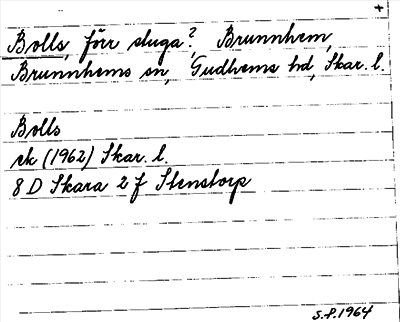 +
Bolls, förr stuga?, Brunnhem,
Brunnhems sn, Gudhems hd, Skar. l.
Bolls
ek (1962) Skar. l.
8 D Skara 2 f Stenstorp
S.P. 1964